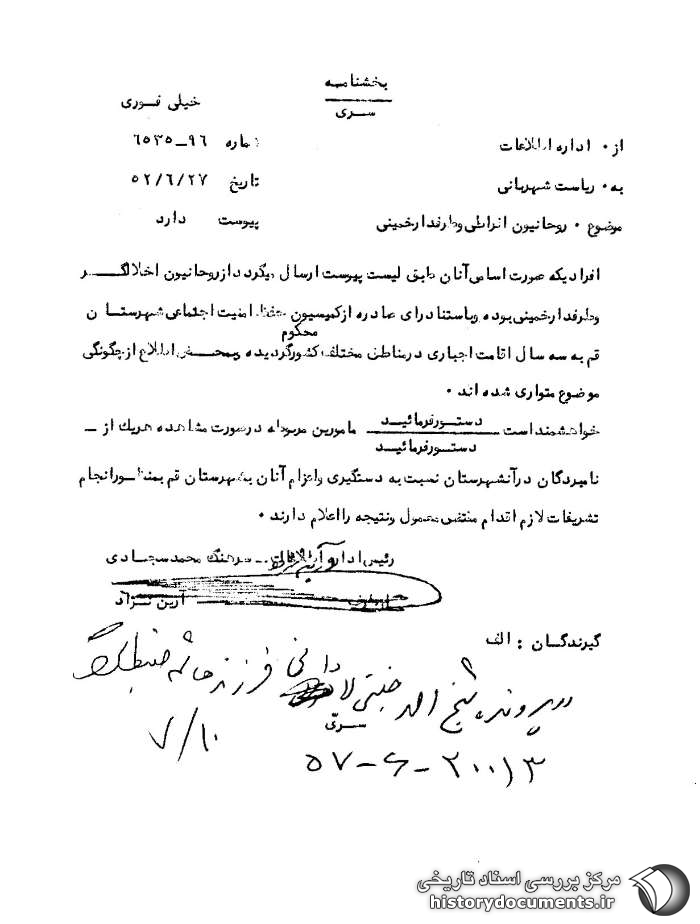 بخشنامه
سری
خیلی فوری
از • اداره اطلاعات
شماره ۹۶-۶۵۳۵
به • ریاست شهربانی
تاریخ ۵۲/۶/۲۷
موضوع • روحانیون افراطی وطرفدارخمینی
پیوست دارد
افرادیکه صورت اسامی آنان طبق لیست پیوست ارسال میگردد ازروحانیون اخلالگر
وطرفدارخمینی بوده وباستنادرای صادره ازکمیسیون حفظ امنیت اجتماعی شهرستان
محکوم
قم به سه سال اقامت اجباری درمناطق مختلف کشورگردیده وبمحض اطلاع ازچگونگی
موضوع متواری شده اند •
دستورفرمائید
خواهشمنداست مامورین مربوطه درصورت مشاهده هریک از -
دستورفرمائید
نامبردگان درآنشهرستان نسبت به دستگیری واعزام آنان بشهرستان قم بمنظورانجام
تشریفات لازم اقدام مقتضی معمول ونتیجه رااعلام دارند •
رئیس اداره سرهنگ محمدسجادی
آرین نژاد
گیرندگان : الف
درپرونده شیخ احمد جنتی لادانی فرزند هاشم ضبط
سری
۷/۱۰
۵۷-۶-۲۰۰۱۳
مرکز بررسی اسناد تاریخی
historydocuments.ir